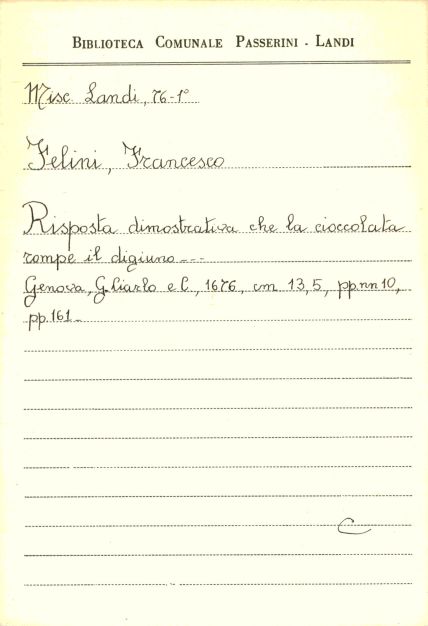 BIBLIOTECA COMUNALE PASSERINI - LANDI
Misc. Landi, 76-1°
Felini, Francesco
Risposta dimostrativa che la cioccolata
rompe il digiuno ---
Genova, G. Ciarlo e C, 1676, cm 13,5, pp.nn 10,
pp. 161_
C